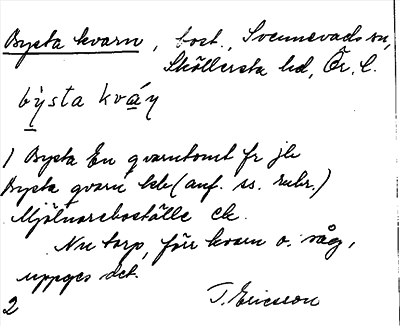 Bysta kvarn, bost., Svennevads sn,
Sköllersta hd, Ör. l.
bysta kvań
1) Bysta En qvarntomt fr jb
Bysta qvarn kb (anf. ss. rubr.)
Mjölnareboställe ek.
Nu torp, förr kvarn o. såg,
uppges det.
2 T. Ericsson